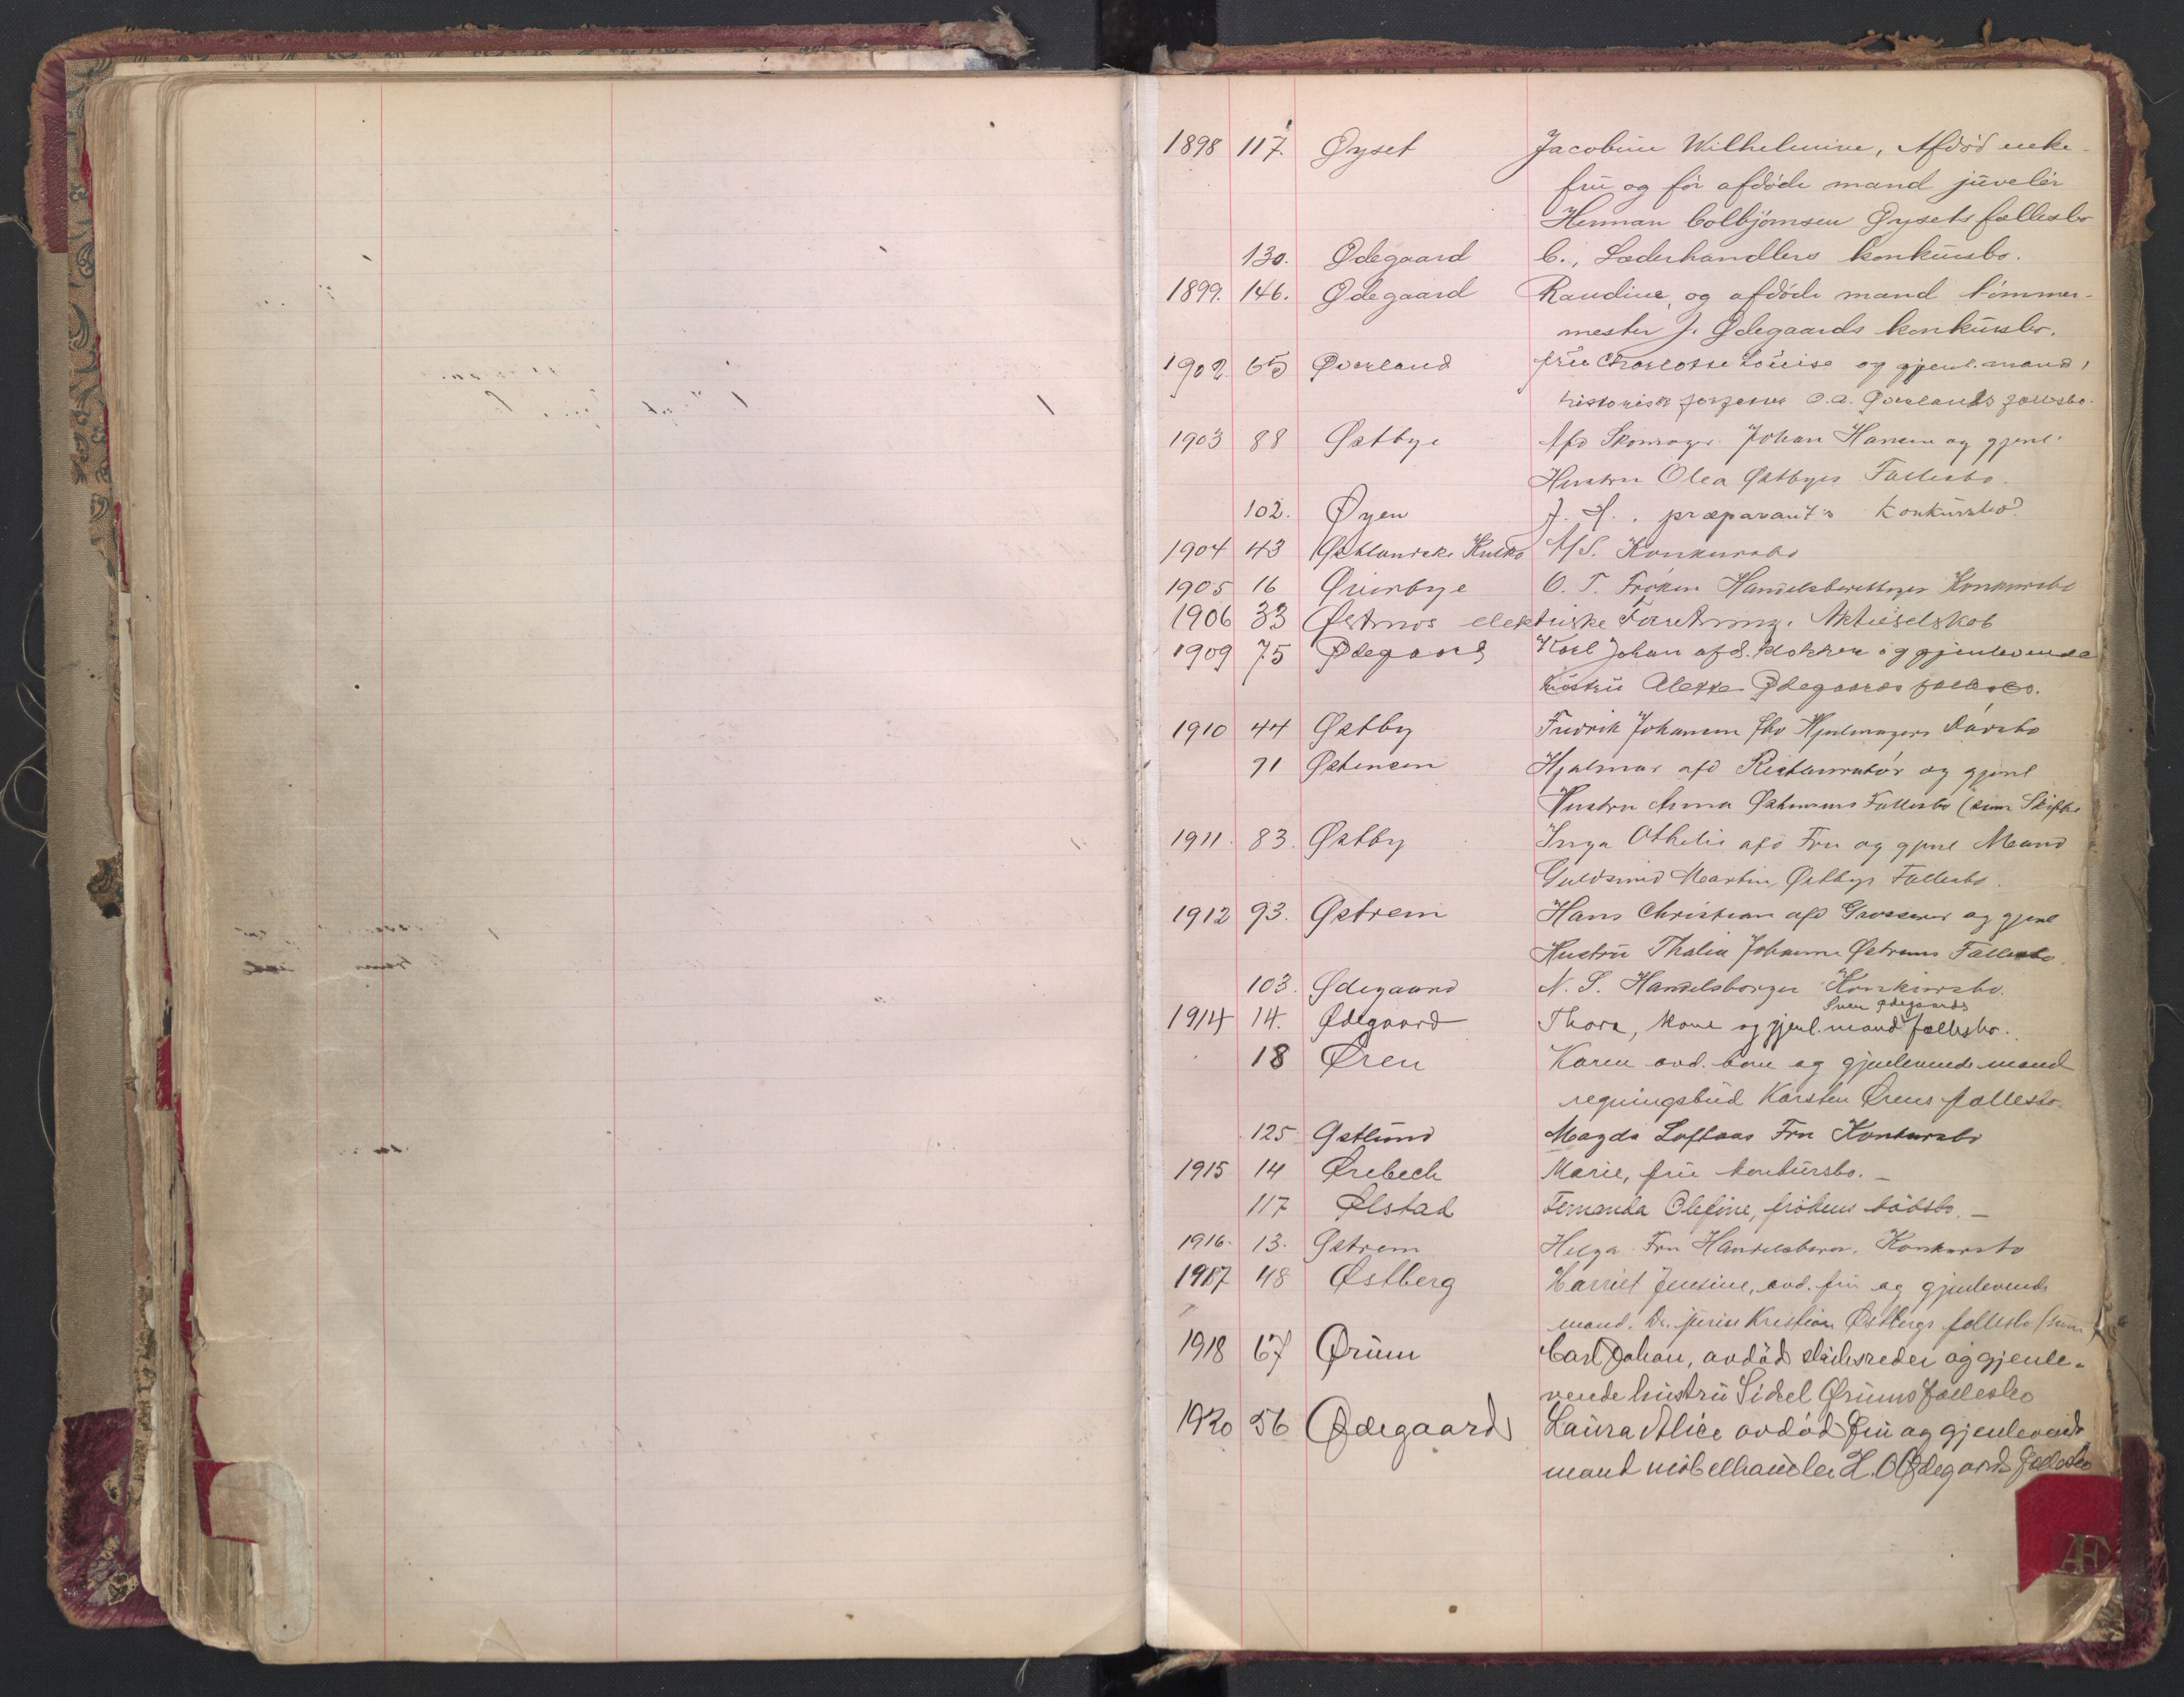 1898 117. Øyset Jacobine Wilhelmine, Afdød enke-
frü og før afdøde mand jüvelér
Herman Colbjørnsen Øysets fællesbo
130. Ødegaard C., Læderhandlers konkürsbo.
1899. 146. Ødegaard Randine, og afdøde mand tömmer-
mester J. Ødegaards konkürsbo.
1902. 65 Øverland frü Charlotte Louise og gjenl. mand,
historisk forfatter O.A. Øverlands fællesbo.
1903 88 Østbye Afd Skomager Johan Hansen og gjenl.
Hustru Olea Østbyes Fællesbo.
102. Øyen J. H., præparant's konkürsbo.
1904 43 Østlandske Kulko A/S. Konkursbo
1905 16 Øverbye O. T. Frøken Handelsberettiges Konkursbo
1906 33 Østmos elektriske Forretning. Aktieselskab
1909 75 Ødegaard Karl Johan afd. klokker og gjenlevende
hüstrü Alette Ødegaards fællesbo.
1910 44 Østby Fredrik Johansen fhv Hjulmagers Dødsbo
71 Østensen Hjalmar afd Restauratør og gjenl
Hustru Anna Østensens Fællesbo (sum Skifte
1911. 83. Østby Inga Othelie afd Fru og gjenl Mand
Guldsmed Martin Østbys Fællesbo.
1912 93. Østrem Hans Christian afd Grosserer og gjenl
Hustrü Thalia Johanne Østrems Fællesbo.
103. Ødegaard N. S. Handelsborger Konkürsbo.
Sven Ødegaards
1914 14. Ødegaard Thora, kone og gjenl. mand fællesbo.
18 Øren Karen avd. kone og gjenlevende mand
regningsbüd Karsten Ørens fællesbo.
125 Østlünd Magda Loftaas Fru Konkursbo
1915 14 Ørebech Marie, frü konkürsbo. —
117 Ølstad Fernanda Olefine, frökens dödsbo. —
1916. 13. Østrem Helga Fru Handelsborg. Konkursbo
1917 48 Østberg Harriet Jensine, avd. frü og gjenlevende
mand. Dr. juris Kristian Østbergs fællesbo (sum
1918 67 Ørüm Carl Johan, avdöd skibsreder og gjenle-
vende hüstrü Sidsel Ørüms fællesbo
1920 56 Ødegaard Laüra Alice avdöd frü og gjenlevende
mand möbelhandler H. O Ødegaards fællesbo
Æ